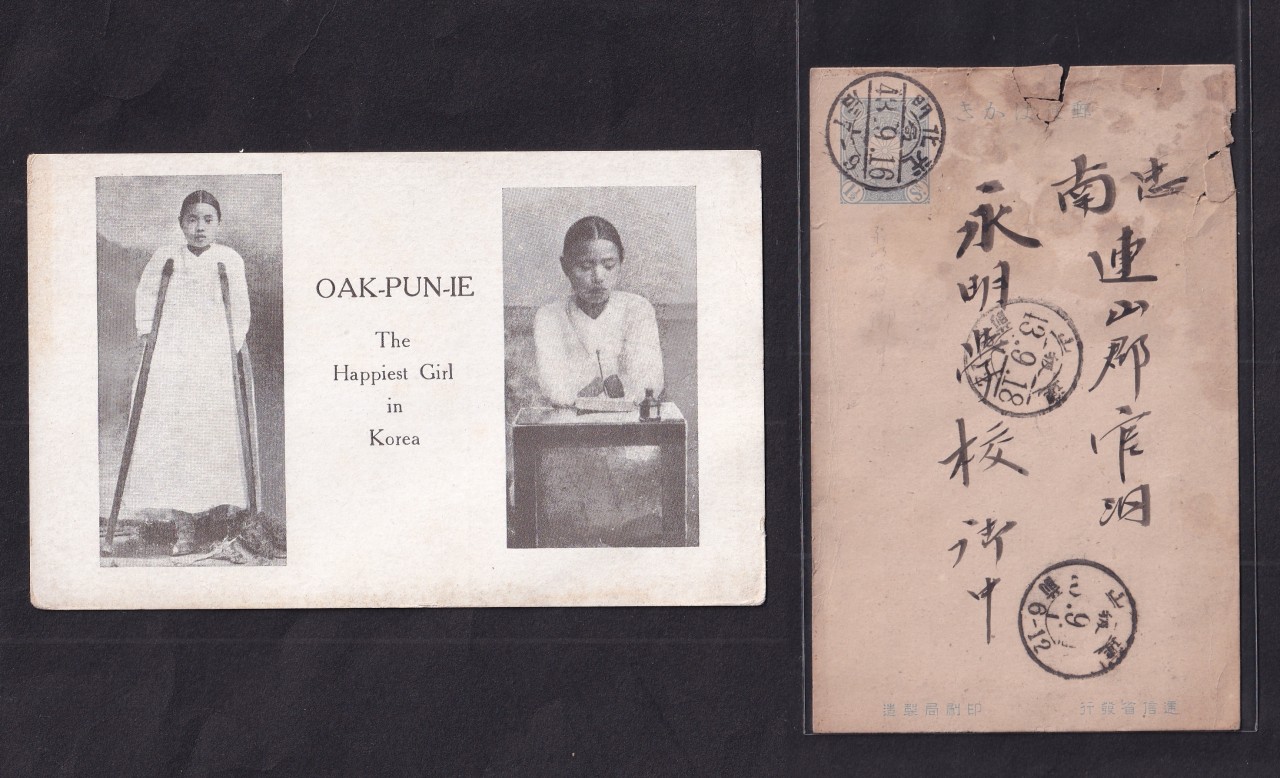 OAK-PUN-IE
The
Happiest Girl
in
Korea
郵便はがき
忠
南
連山郡官洞
永明學校御中
43.9.16
43.9.18
印刷局製造
逓信省發行